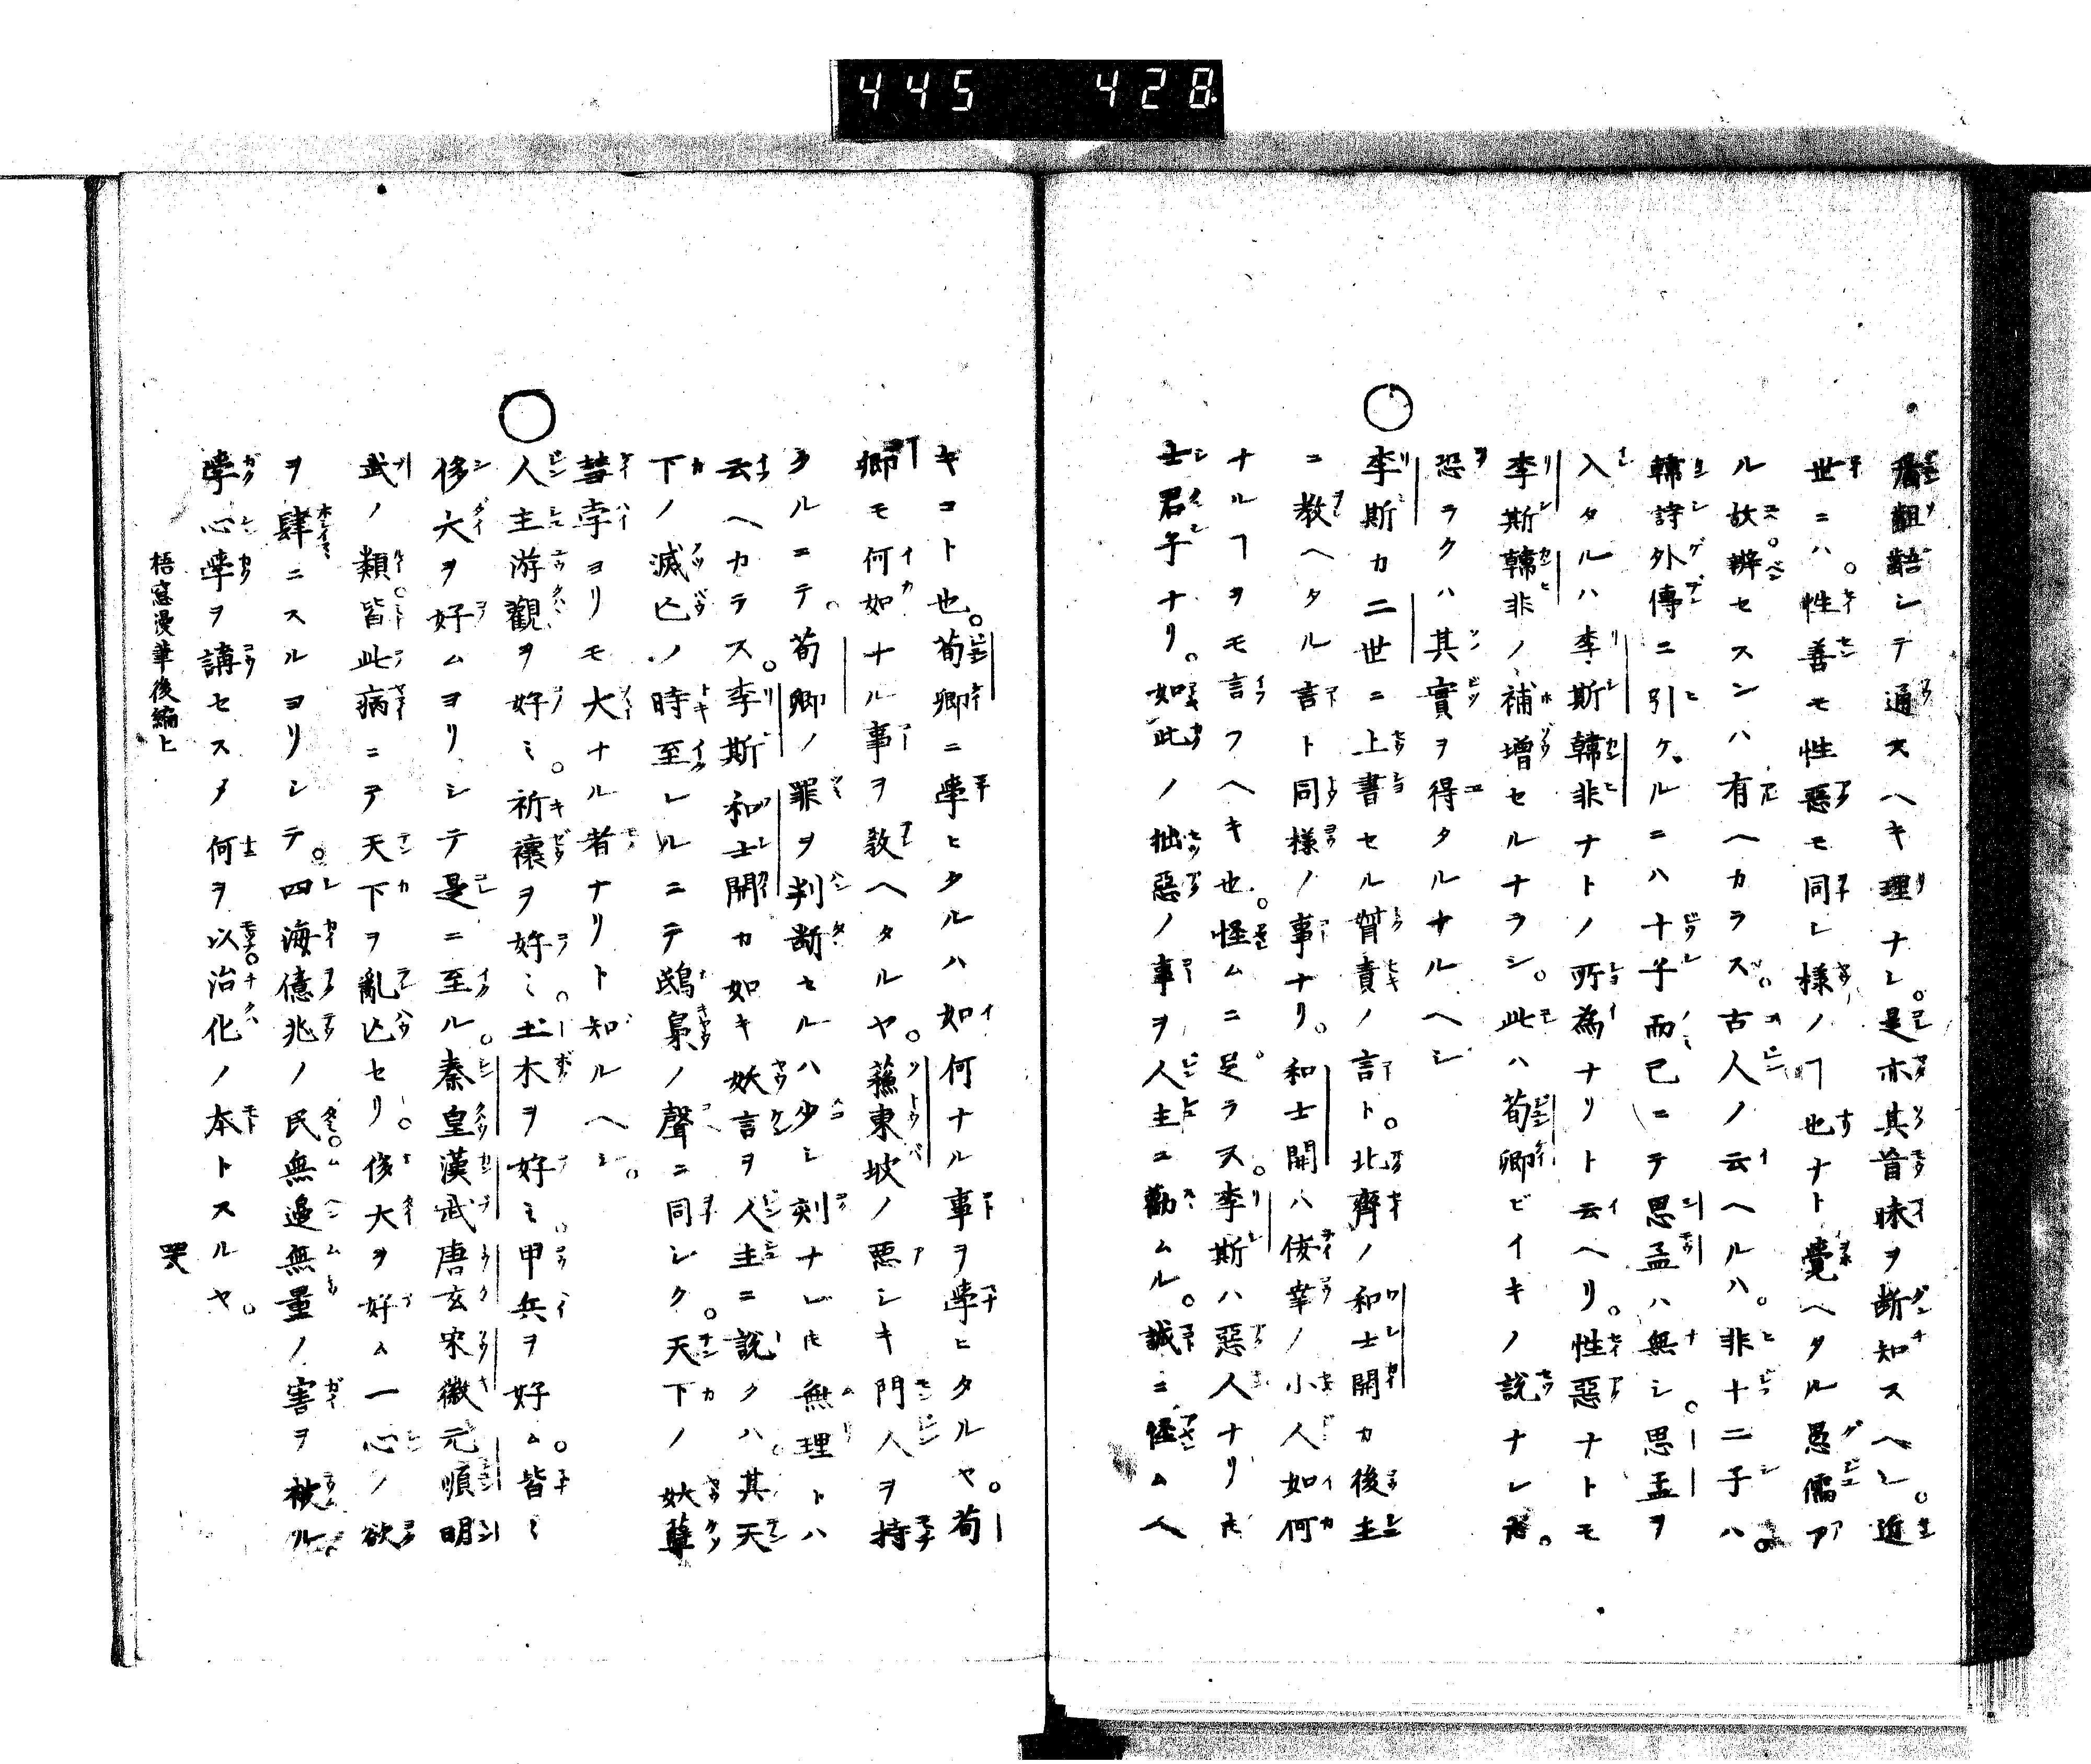 445 428
齟齬シテ通スヘキ理ナシ。是亦其首昧ヲ断知スヘシ。近
世ニハ。性善モ性惡モ同シ様ノヿ也ナト覺ヘタル愚儒ア
ル故。辨セスンハ有ヘカラス。古人ノ云ヘルハ。非十二子ハ。
韓詩外傳ニ引ケルニハ十子而已ニテ思孟ハ無シ。思孟ヲ
入タルハ李斯韓非ナトノ所為ナリト云ヘリ。性惡ナトモ
李斯韓非ノ補増セルナラシ。此ハ荀卿ビイキノ説ナレ𪜈。
恐ラクハ其實ヲ得タルナルヘシ
○李斯カ二世ニ上書セル督責ノ言ト。北齊ノ和士開カ後主
ニ教ヘタル言ト同様ノ事ナリ。和士開ハ佞幸ノ小人如何
ナルヿヲモ言フヘキ也。怪ムニ足ラス。李斯ハ惡人ナリ𪜈
士君子ナリ。如此ノ拙惡ノ事ヲ人主ニ勸ムル。誠ニ怪ムヘ
キコト也。荀卿ニ學ヒタルハ如何ナル事ヲ學ヒタルヤ。荀
卿モ何如ナル事ヲ敎ヘタルヤ。蘓東坡ノ悪シキ門人ヲ持
タルニテ。荀卿ノ罪ヲ判断セルハ少シ刻ナレ𪜈無理トハ
云ヘカラス。李斯和士開カ如キ妖言ヲ人主ニ説クハ。其天
下ノ滅亡ノ時至レルニテ鴟梟ノ聲ニ同シク。天下ノ妖孽
彗孛ヨリモ大ナル者ナリト知ルヘシ。
○人主游觀ヲ好ミ。祈禳ヲ好ミ。土木ヲ好ミ。甲兵ヲ好ム。皆ミ
侈大ヲ好ムヨリシテ是ニ至ル。秦皇漢武唐玄宋徽元順明
武ノ類。皆此病ニテ天下ヲ亂亡セリ。侈大ヲ好ム一心ノ欲
ヲ肆ニスルヨリシテ。四海億兆ノ民。無邊無量ノ害ヲ被ル。
學心學ヲ講セスメ何ヲ以。治化ノ本トスルヤ。
梧窓漫筆後編上